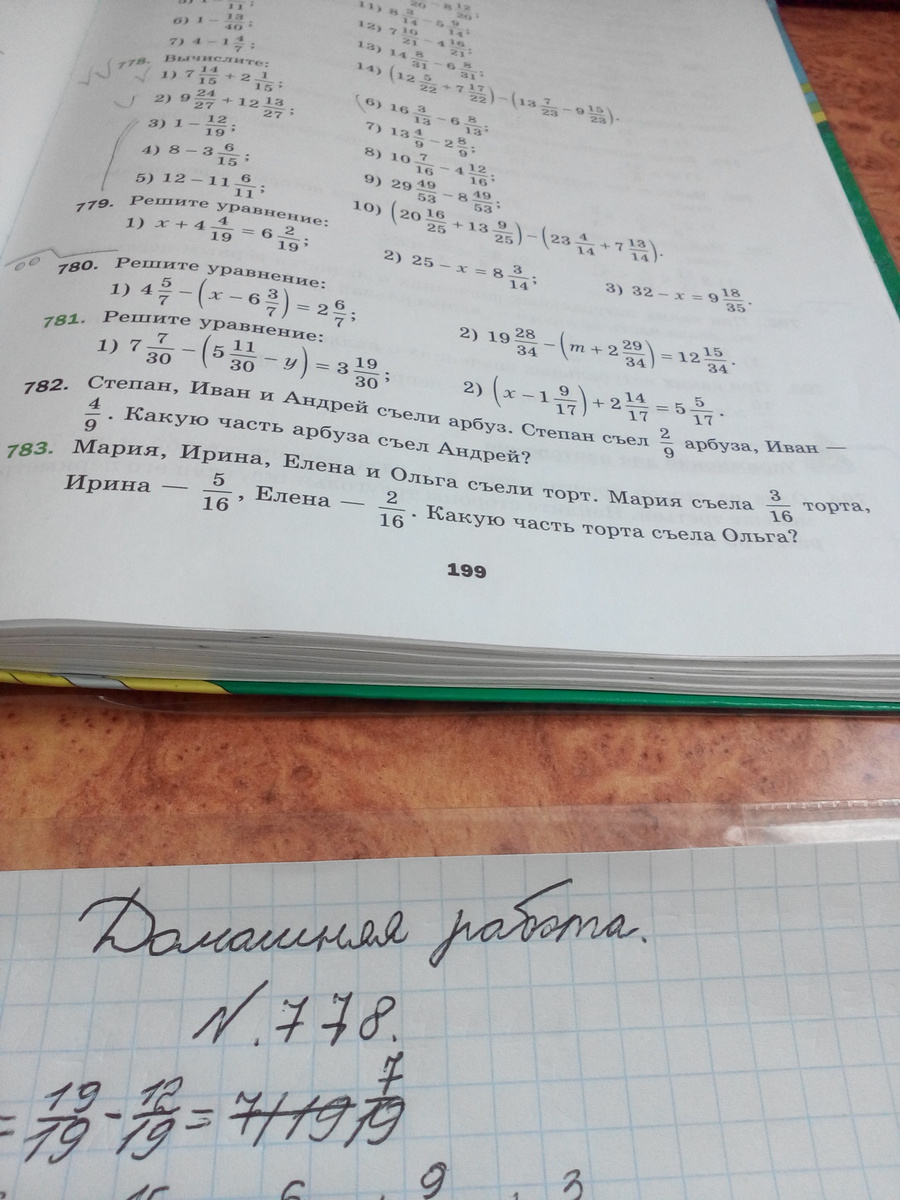 6) 1 − 13/40;
7) 4 − 1 4/7;
12) 7 10/21 − 4 16/21;
13) 14 8/31 − 6 8/31;
14) (12 5/22 + 7 17/22) − (13 7/23 − 9 15/23).
778. Вычислите:
1) 7 14/15 + 2 1/15;
2) 9 24/27 + 12 13/27;
3) 1 − 12/19;
4) 8 − 3 6/15;
5) 12 − 11 6/11;
6) 16 3/13 − 6 8/13;
7) 13 4/9 − 2 8/9;
8) 10 7/16 − 4 12/16;
9) 29 49/53 − 8 49/53;
10) (20 16/25 + 13 9/25) − (23 4/14 + 7 13/14).
779. Решите уравнение:
1) x + 4 4/19 = 6 2/19;
2) 25 − x = 8 3/14;
3) 32 − x = 9 18/35.
780. Решите уравнение:
1) 4 5/7 − (x − 6 3/7) = 2 6/7;
2) 19 28/34 − (m + 2 29/34) = 12 15/34.
781. Решите уравнение:
1) 7 7/30 − (5 11/30 − y) = 3 19/30;
2) (x − 1 9/17) + 2 14/17 = 5 5/17.
782. Степан, Иван и Андрей съели арбуз. Степан съел 2/9 арбуза, Иван —
4/9. Какую часть арбуза съел Андрей?
783. Мария, Ирина, Елена и Ольга съели торт. Мария съела 3/16 торта,
Ирина — 5/16, Елена — 2/16. Какую часть торта съела Ольга?
199
Домашняя работа.
N.778.
= 19/19 − 12/19 = 7/19